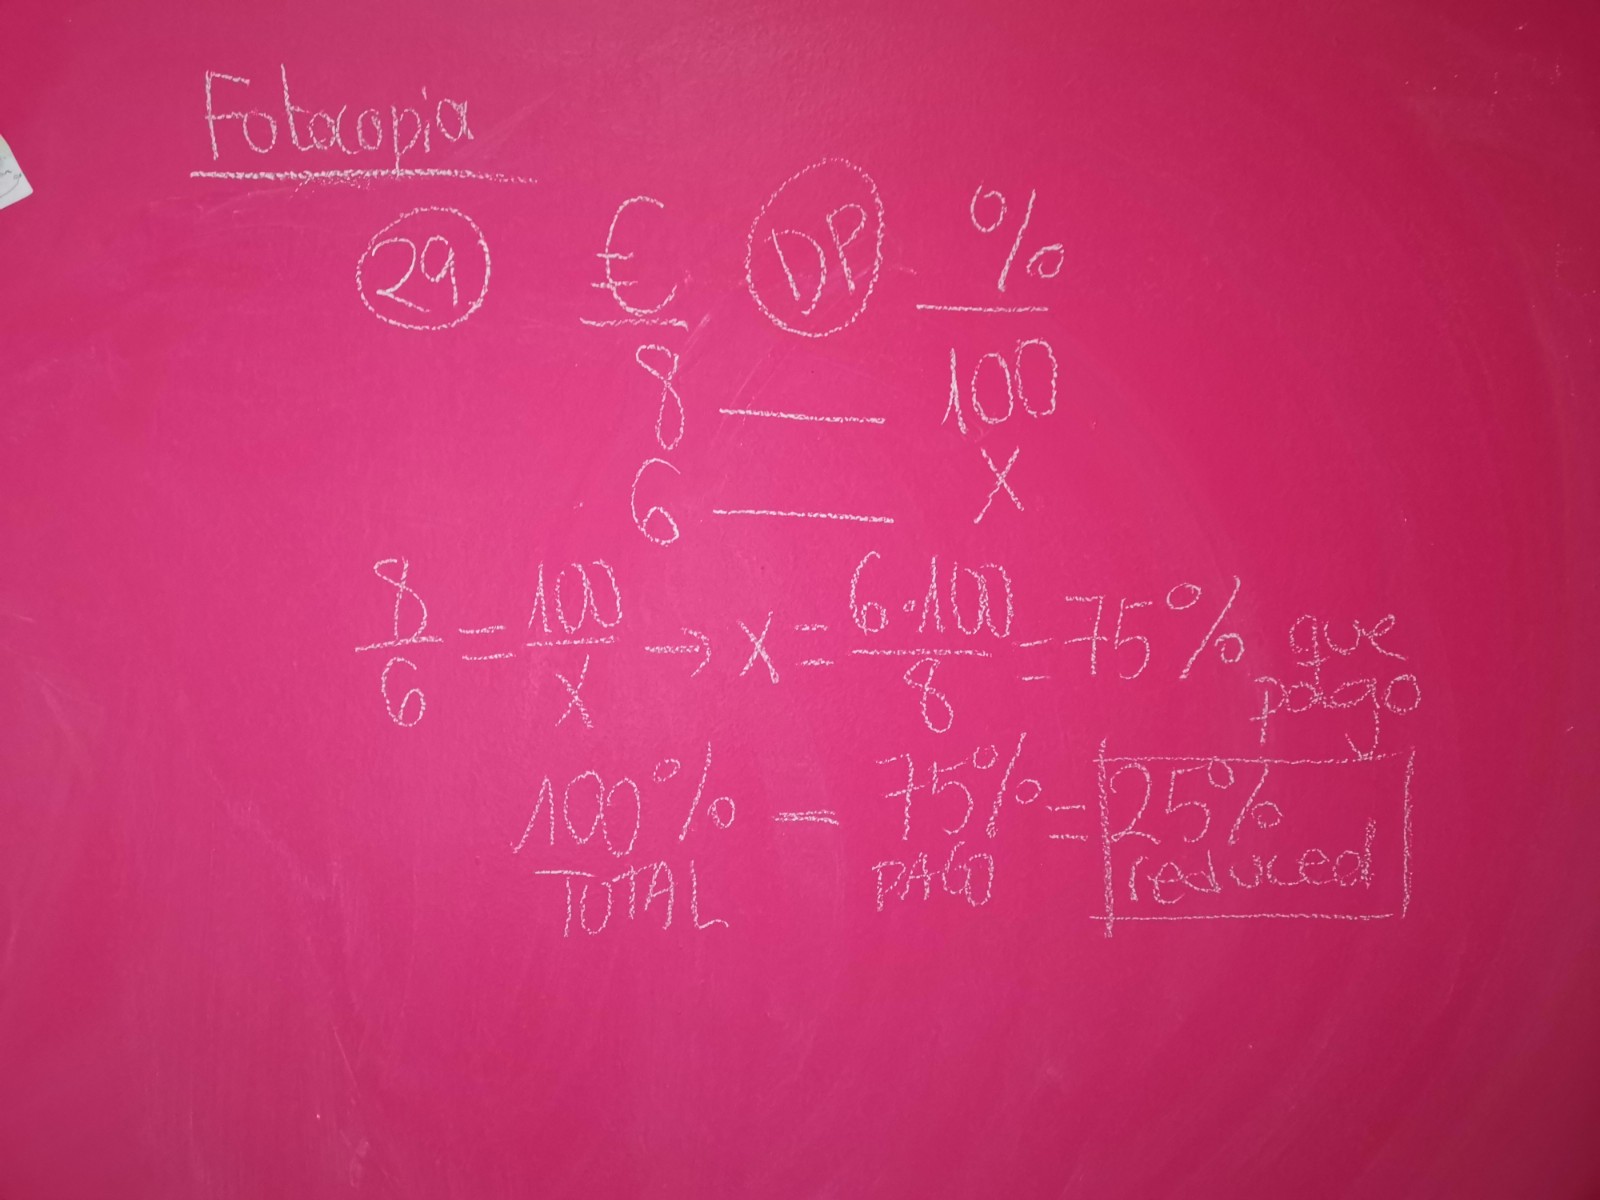 Fotocopia
29 € DP %
8 — 100
6 — X
8/6 = 100/X → X = 6·100/8 = 75% que pago
100% - 75% = 25%
TOTAL PAGO reduced